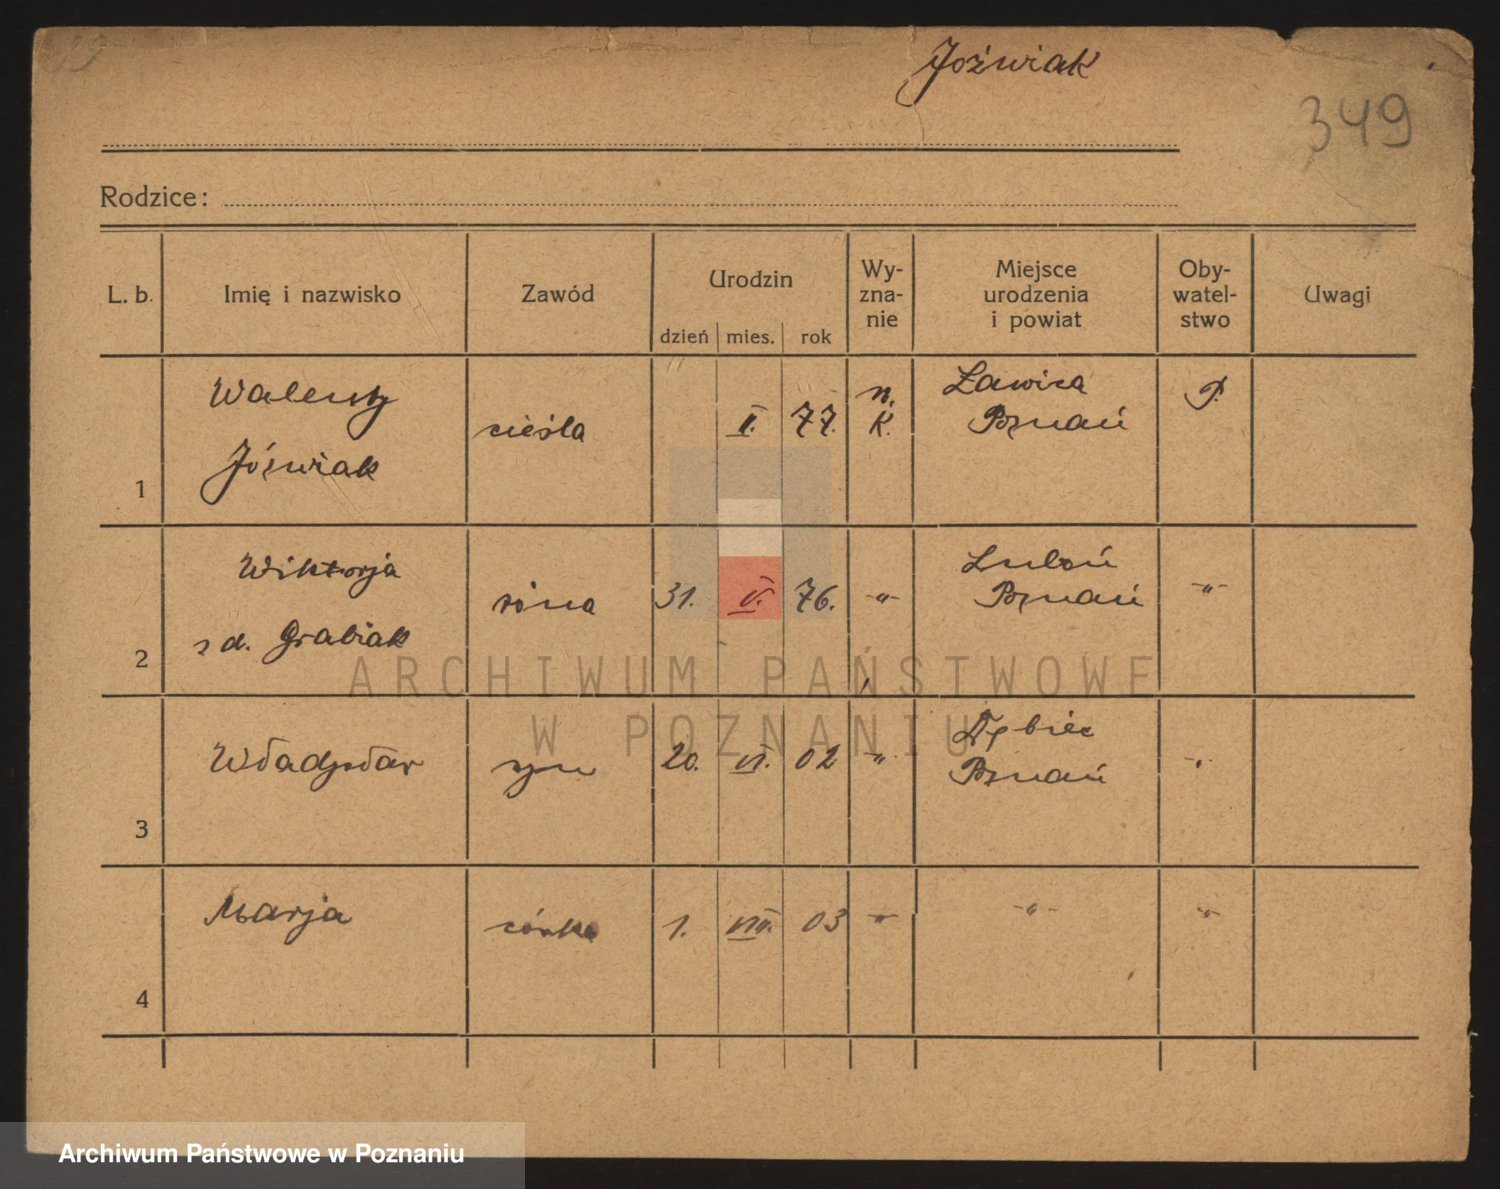 Jóźwiak
349
Rodzice:
L. b. Imię i nazwisko Zawód Urodzin dzień mies. rok Wy-zna-nie Miejsce urodzenia i powiat Oby-watel-stwo Uwagi
1 Walenty Jóźwiak cieśla II. 77. K. Ławica Poznań P.
2 Wiktorja z d. Grabiak żona 31. 76. -"- Luboń Poznań -"-
3 Władysław syn 20. VI. 02 -"- Dębiec Poznań -"-
4 Marja córka 1. VIII. 03 -"- -"- -"-
ARCHIWUM PAŃSTWOWE
W POZNANIU
Archiwum Państwowe w Poznaniu